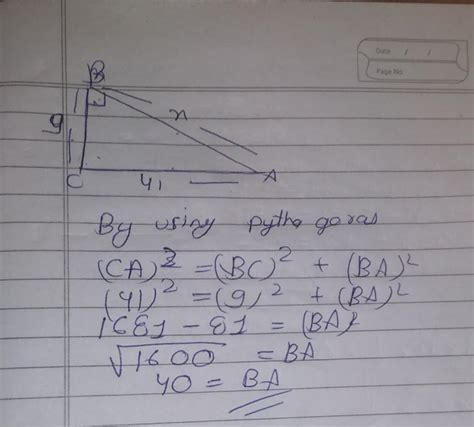 Date / /
Page No
B
9
x
C
41
A
By using pythagoras
(CA)² = (BC)² + (BA)²
(41)² = (9)² + (BA)²
1681 - 81 = (BA)²
√1600 = BA
40 = BA